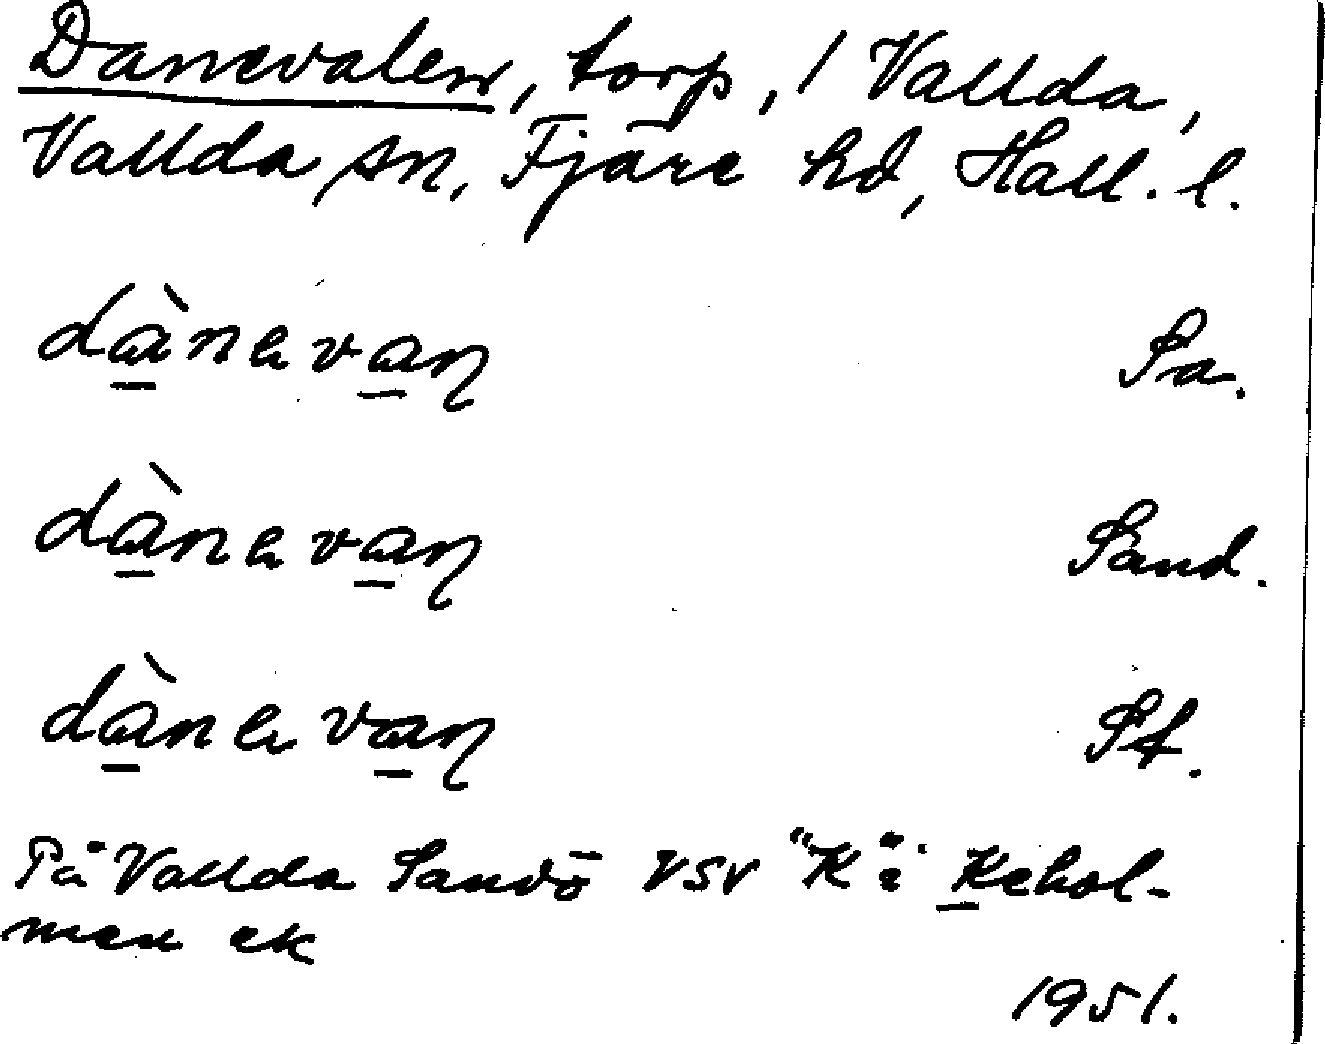 Danevalen, torp, / Vallda,
Vallda sn, Fjäre hd, Hall. l.
dànevaɳ Sa.
dànevaɳ Sand.
dànevaɳ St.
På Vallda Sandö VSV "K" i Kehol-
men ek
1951.